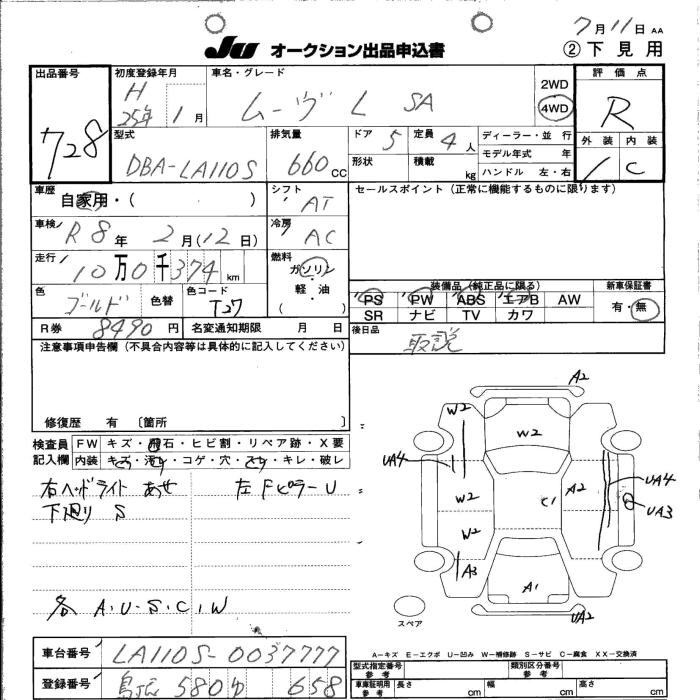 7月11日 AA
JU オークション出品申込書 ②下見用
出品番号 728
初度登録年月 H 25年 1月
車名・グレード ムーヴ L SA
2WD
4WD
評価点 R
外装 内装
1 C
型式 DBA-LA110S
排気量 660 CC
ドア 5 定員 4人
形状 積載 kg
ディーラー・並行
モデル年式 年
ハンドル 左・右
車歴 自家用・( )
シフト AT
セールスポイント (正常に機能するものに限ります)
車検 R8年 2月(12日)
冷房 AC
走行 10万0千374km
燃料 ガソリン・軽・油 ( )
色 ゴールド 色替 色コード T27
装備品 (純正品に限る)
PS PW ABS エアB AW
SR ナビ TV カワ
新車保証書
有・無
R券 8490円 名変通知期限 月 日
後日品 取説
注意事項申告欄 (不具合内容等は具体的に記入してください)
修復歴 有 〔箇所 〕
検査員記入欄
FW キズ・飛石・ヒビ割・リペア跡・X要
内装 キズ・汚れ・コゲ・穴・キレ・破レ
右ヘッドライト あせ 左FピラーU
下廻り S
各 A.U.S.C.W
A2
W2
W2
UA4
A2
UA4
W2
C1
UA3
W2
A3
A1
UA2
スペア
A-キズ E-エクボ U-凹み W-補修跡 S-サビ C-腐食 XX-交換済
車台番号 LA110S-0037777
登録番号 580 ゆ 658
型式指定番号 参考
類別区分番号 参考
車庫証明用 参考 長さ cm 幅 cm 高さ cm